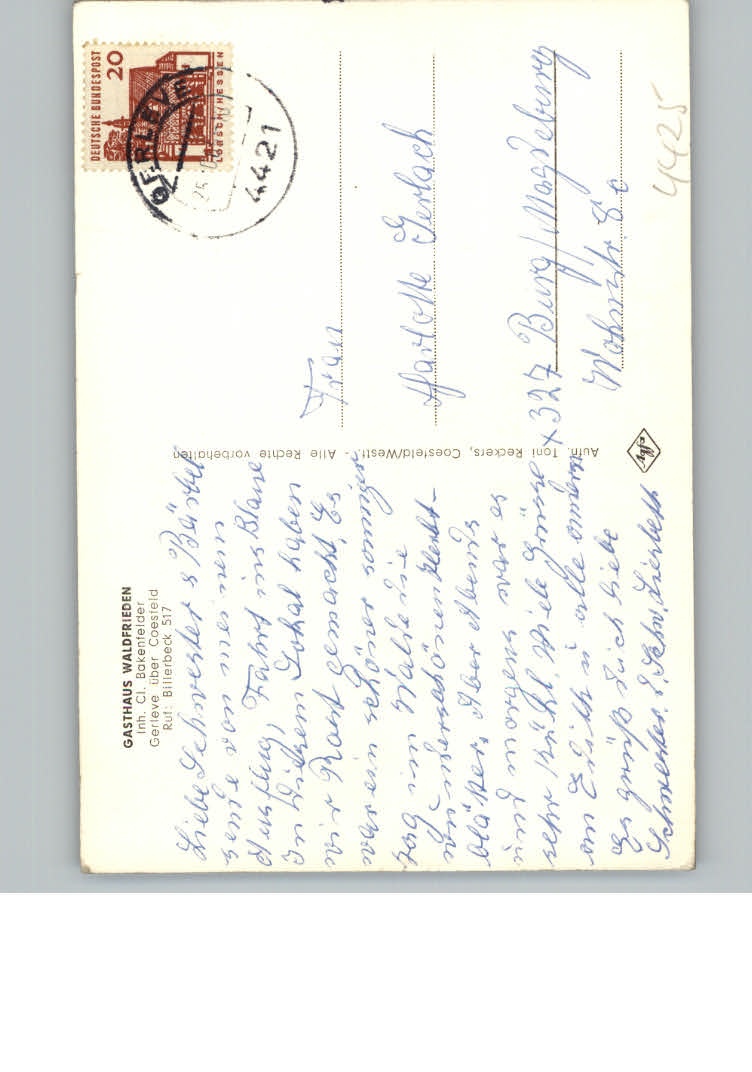 GASTHAUS WALDFRIEDEN
Inh. Cl. Bakenfelder
Gerleve über Coesfeld
Ruf: Billerbeck 517
Liebe Schwester & Bärbel
sende von meinem
Ausflug, Fahrt ins Blaue
In diesem Lokal haben
wir Rast gemacht, Es
war ein schöner sonniger
Tag im Walde die
wunderschönen Herbst-
blätter, Aber Abends
und morgens war es
sehr kühl, Viele Grüsse
an Edith u alle andern
Es grüß Dich liebe
Schwester, D. Schw. Liesbeth
Aufn. Toni Reckers, Coesfeld/Westf. - Alle Rechte vorbehalten
Agfa
DEUTSCHE BUNDESPOST
20
LORSCH/HESSEN
GERLEVE
25.
4421
Frau
Charlotte Gerlach
x 327 Burg/Magdeburg
8c
4425